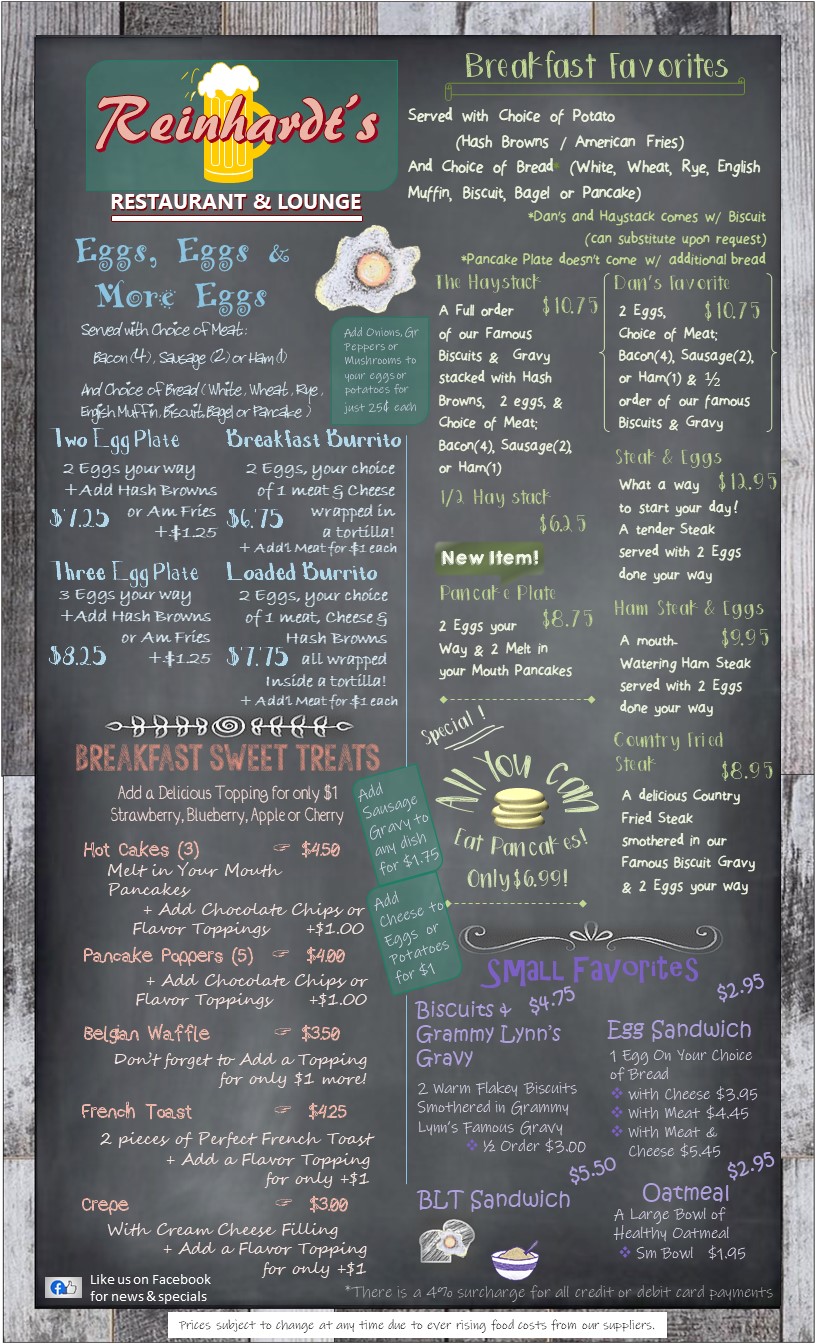 Reinhardt's
RESTAURANT & LOUNGE
Eggs, Eggs &
More Eggs
Served with Choice of Meat:
Bacon(4), Sausage (2) or Ham(1)
And Choice of Bread (White, Wheat, Rye,
English Muffin, Biscuit, Bagel or Pancake )
Add Onions, Gr
Peppers or
Mushrooms to
your eggs or
potatoes for
just 25¢ each
Two Egg Plate
2 Eggs your way
+Add Hash Browns
or Am Fries
$7.25
+$1.25
Breakfast Burrito
2 Eggs, your choice
of 1 meat & Cheese
$6.75
wrapped in
a tortilla!
+ Add'l Meat for $1 each
Three Egg Plate
3 Eggs your way
+Add Hash Browns
or Am Fries
$8.25
+$1.25
Loaded Burrito
2 Eggs, your choice
of 1 meat, Cheese &
Hash Browns
$7.75
all wrapped
Inside a tortilla!
+ Add'l Meat for $1 each
BREAKFAST SWEET TREATS
Add a Delicious Topping for only $1
Strawberry, Blueberry, Apple or Cherry
Hot Cakes (3) ☞ $4.50
Melt in Your Mouth
Pancakes
+ Add Chocolate Chips or
Flavor Toppings +$1.00
Pancake Poppers (5) ☞ $4.00
+ Add Chocolate Chips or
Flavor Toppings +$1.00
Belgian Waffle ☞ $3.50
Don't forget to Add a Topping
for only $1 more!
French Toast ☞ $4.25
2 pieces of Perfect French Toast
+ Add a Flavor Topping
for only +$1
Crepe ☞ $3.00
With Cream Cheese Filling
+ Add a Flavor Topping
for only +$1
Add
Sausage
Gravy to
any dish
for $1.75
Add
Cheese to
Eggs or
Potatoes
for $1
Like us on Facebook
for news & specials
Breakfast Favorites
Served with Choice of Potato
(Hash Browns / American Fries)
And Choice of Bread* (White, Wheat, Rye, English
Muffin, Biscuit, Bagel or Pancake)
*Dan's and Haystack comes w/ Biscuit
(can substitute upon request)
*Pancake Plate doesn't come w/ additional bread
The Haystack
$10.75
A Full order
of our Famous
Biscuits & Gravy
stacked with Hash
Browns, 2 eggs, &
Choice of Meat;
Bacon(4), Sausage(2),
or Ham(1)
1/2 Hay stack
$6.25
New Item!
Pancake Plate
$8.75
2 Eggs your
Way & 2 Melt in
your Mouth Pancakes
Special !
All You can
Eat Pancakes!
Only $6.99!
Dan's Favorite
$10.75
2 Eggs,
Choice of Meat;
Bacon(4), Sausage(2),
or Ham(1) & ½
order of our famous
Biscuits & Gravy
Steak & Eggs
$12.95
What a way
to start your day!
A tender Steak
served with 2 Eggs
done your way
Ham Steak & Eggs
$9.95
A mouth-
Watering Ham Steak
served with 2 Eggs
done your way
Country Fried
Steak
$8.95
A delicious Country
Fried Steak
smothered in our
Famous Biscuit Gravy
& 2 Eggs your way
Small Favorites
Biscuits & $4.75
Grammy Lynn's
Gravy
2 Warm Flakey Biscuits
Smothered in Grammy
Lynn's Famous Gravy
❖ ½ Order $3.00
$5.50
BLT Sandwich
$2.95
Egg Sandwich
1 Egg On Your Choice
of Bread
❖ with Cheese $3.95
❖ with Meat $4.45
❖ With Meat &
Cheese $5.45
$2.95
Oatmeal
A Large Bowl of
Healthy Oatmeal
❖ Sm Bowl $1.95
*There is a 4% surcharge for all credit or debit card payments
Prices subject to change at any time due to ever rising food costs from our suppliers.